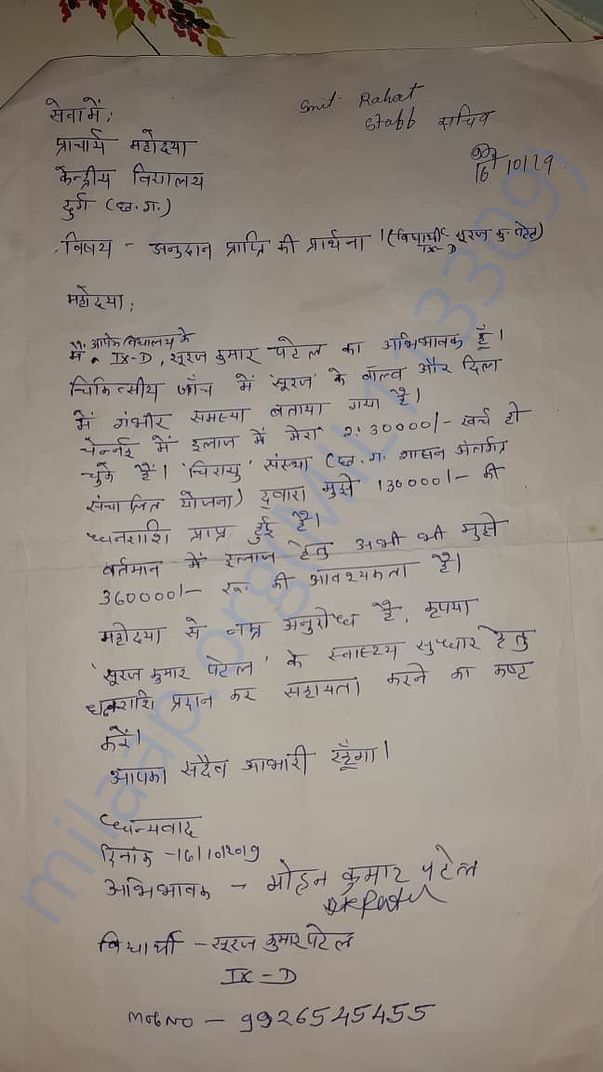 सेवा में,
Smt. Rahat
Stabb सचिव
प्राचार्य महोदया
16/10/19
केन्द्रीय विद्यालय
दुर्ग (छ.ग.)
विषय - अनुदान प्राप्ति की प्रार्थना । (विद्यार्थी सूरज कु. पटेल)
IX-D
महोदया,
मैं आपके विद्यालय के IX-D, सूरज कुमार पटेल का अभिभावक हूँ।
चिकित्सीय जाँच में 'सूरज' के वॉल्व और दिल
में गंभीर समस्या बताया गया है।
चेन्नई में इलाज में मेरा 230000/- खर्च हो
चुके हैं। 'चिरायु' संस्था (छ.ग. शासन अंतर्गत
संचालित योजना) द्वारा मुझे 130000/- की
धनराशि प्राप्त हुई है।
वर्तमान में इलाज हेतु अभी भी मुझे
360000/- रू की आवश्यकता है।
महोदया से नम्र अनुरोध है, कृपया
'सूरज कुमार पटेल' के स्वास्थ्य सुधार हेतु
धनराशि प्रदान कर सहायता करने का कष्ट
करें।
आपका सदैव आभारी रहूँगा।
धन्यवाद
दिनांक - 16/10/2019
अभिभावक - मोहन कुमार पटेल
विद्यार्थी - सूरज कुमार पटेल
IX-D
Mob NO - 9926545455
milaap.org(MIL133091)